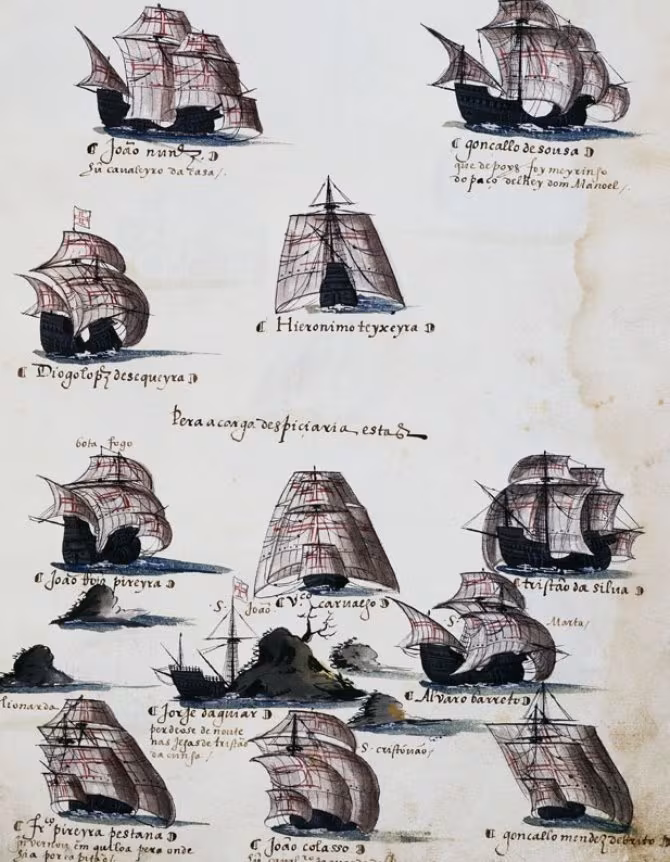 João nunz.
su cavaleyro da casa/.
goncallo de sousa
que depoys foy meyrinso
do paço delRey dom Manoel/.
Hieronimo teyxeyra
Diogo lopz de sequeyra
Pera a carga despiçiaria estas
bota fogo
João Roiz pireyra
S. João
Vco carvalho
tristão da silva
S. Marta/
lionarda
Jorje daguiar
perdeose de noute
nas Jesas de tristão
da cunsa/.
Alvaro barreto
S. cristovão/
frco pireyra pestana
invernou em quiloa pera onde
João colasso
goncallo mendez de brito